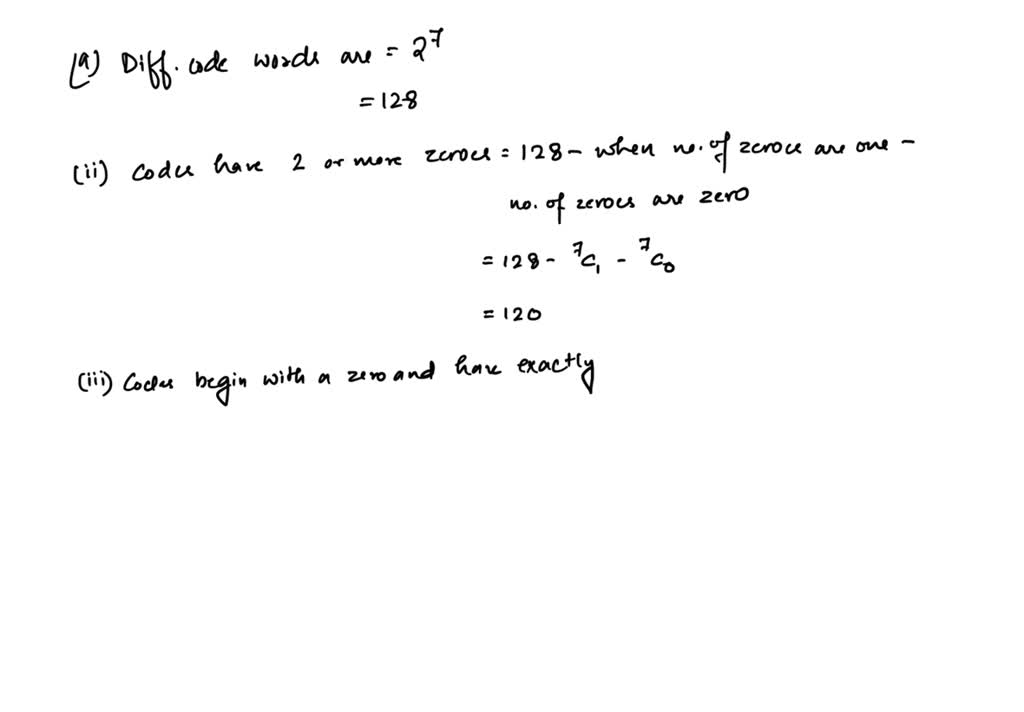 (a) Diff. code words are = 2⁷
= 128
(ii) Codes have 2 or more zeroes = 128 - when no. of zeroes are one -
no. of zeroes are zero
= 128 - ⁷C₁ - ⁷C₀
= 120
(iii) Codes begin with a zero and have exactly